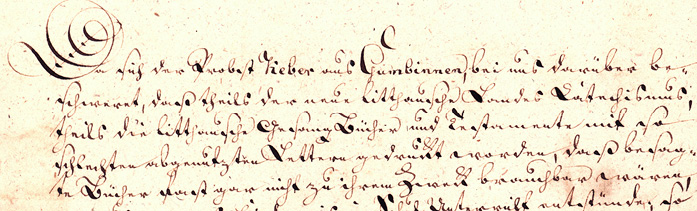 Da sich der Probst Zieber aus Gumbinnen, bei uns darüber be-
schweret, daß theils der neue litthausche Landes Catechismus,
theils die litthausche Gesang Bücher und Testamente mit so
schlechten abgenutzten Lettern gedruckt worden, daß besag-
te Bücher fast gar nicht zu ihrem Zweck brauchbar wären,
Unterricht entstünde, so